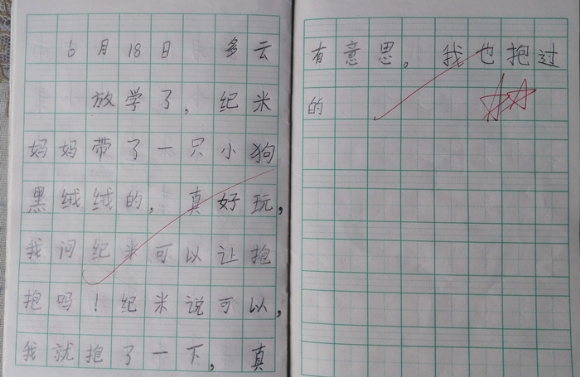 6月18日 多云
放学了，纪米
妈妈带了一只小狗
黑绒绒的，真好玩，
我问纪米可以让抱
抱吗！纪米说可以，
我就抱了一下，真
有意思，我也抱过
的